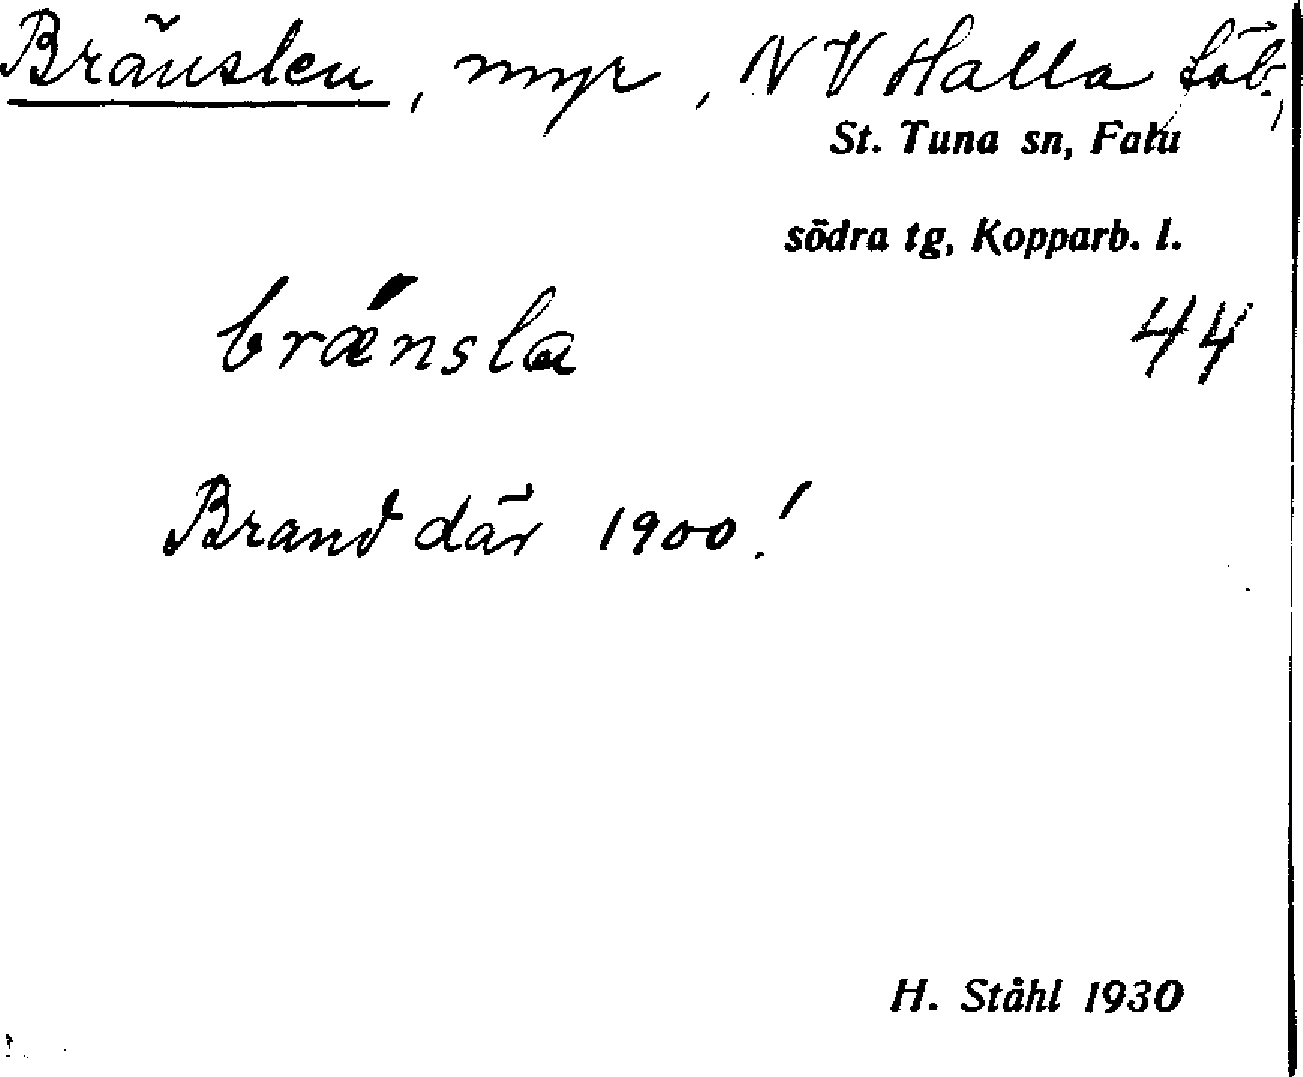 Bränslen, myr, NV Halla fäb.,
St. Tuna sn, Falu
södra tg, Kopparb. l.
brǽnsla 44
Brand där 1900!
H. Ståhl 1930